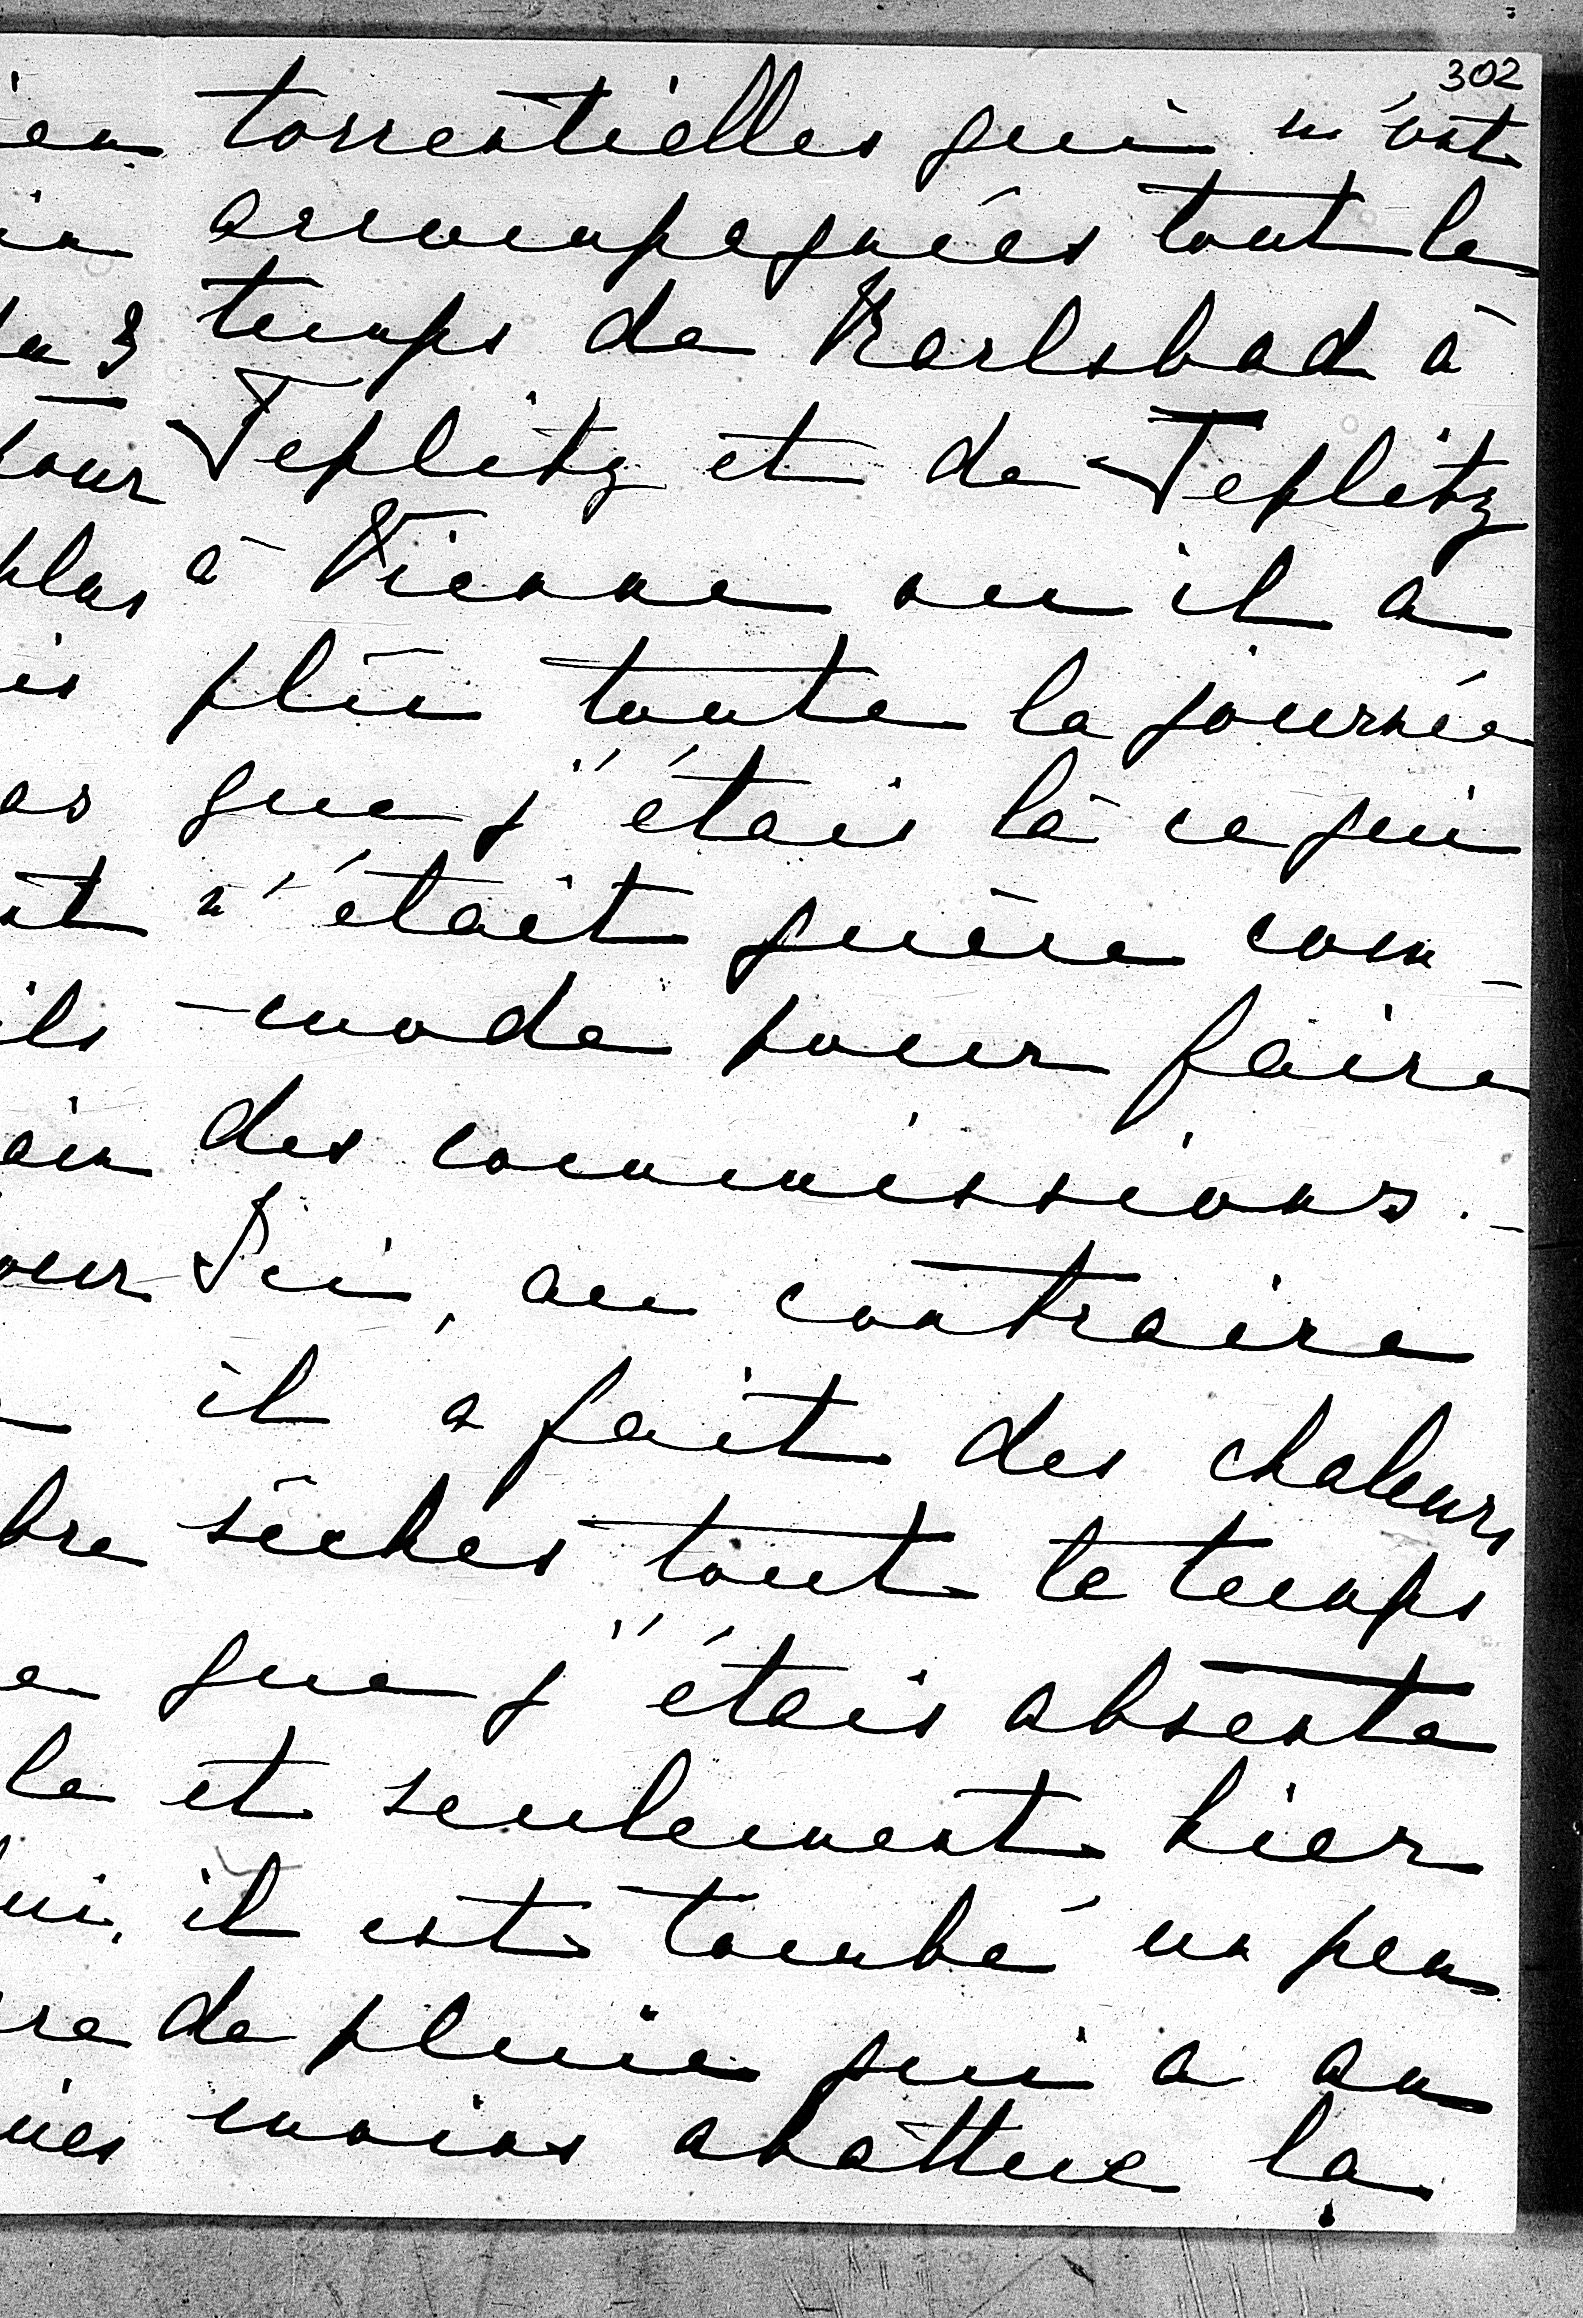 302
torrentielles qui m'ont
accompagnées tout le
temps de Karlsbad à
Teplitz et de Teplitz
à Vienne ou il a
plû toute la journée
que j'étais là ce qui
n'était guère com-
-mode pour faire
des commissions.-
Ici, au contraire
il a fait des chaleurs
sèches tout le temps
que j'étais absente
et seulement hier
il est tombé un peu
de pluie qui a au
moins abattue la